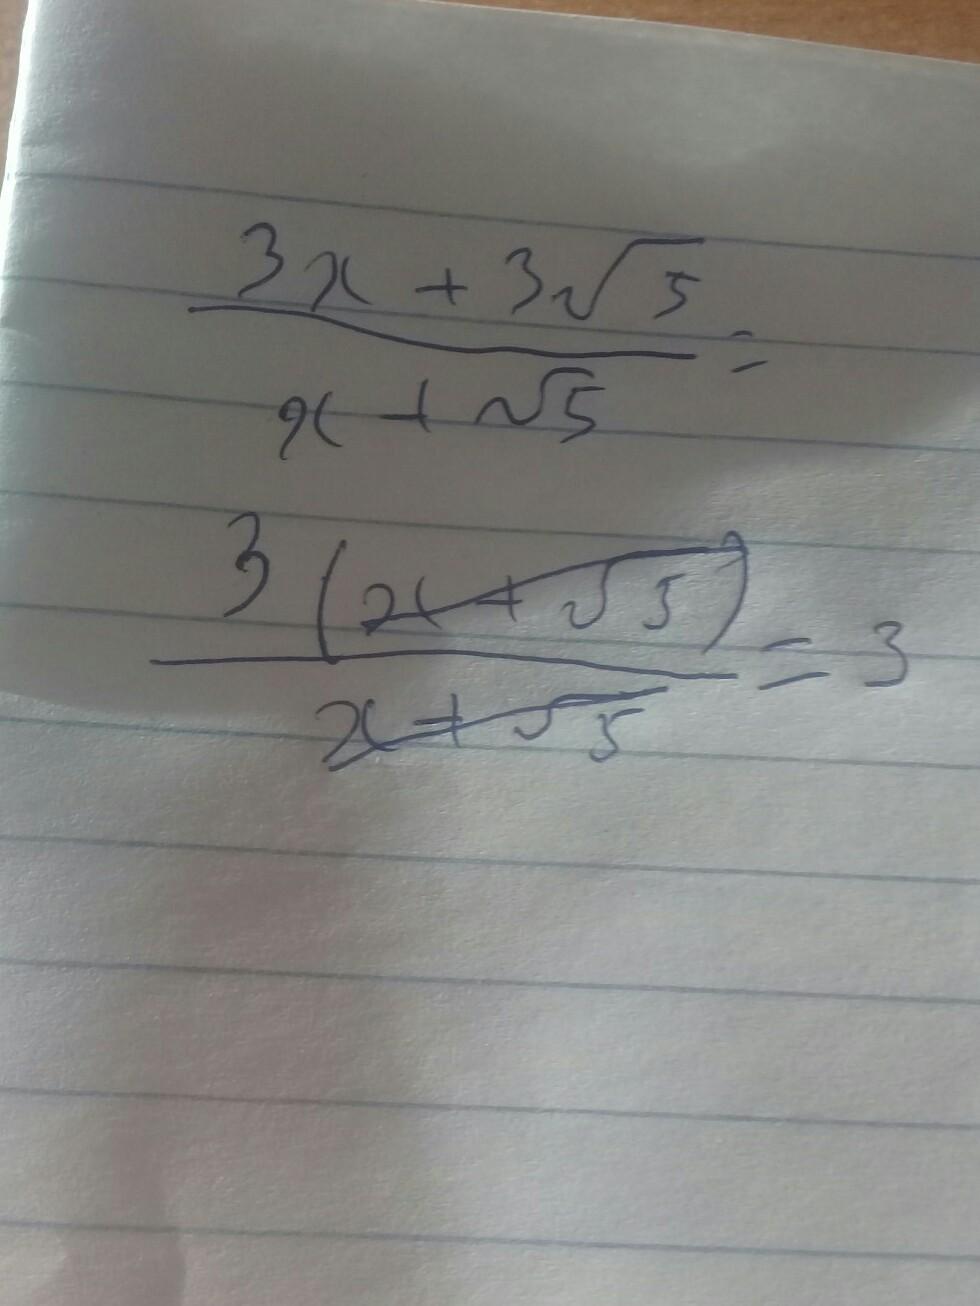 3x + 3√5 / x + √5 =
3(x + √5) / x + √5 = 3